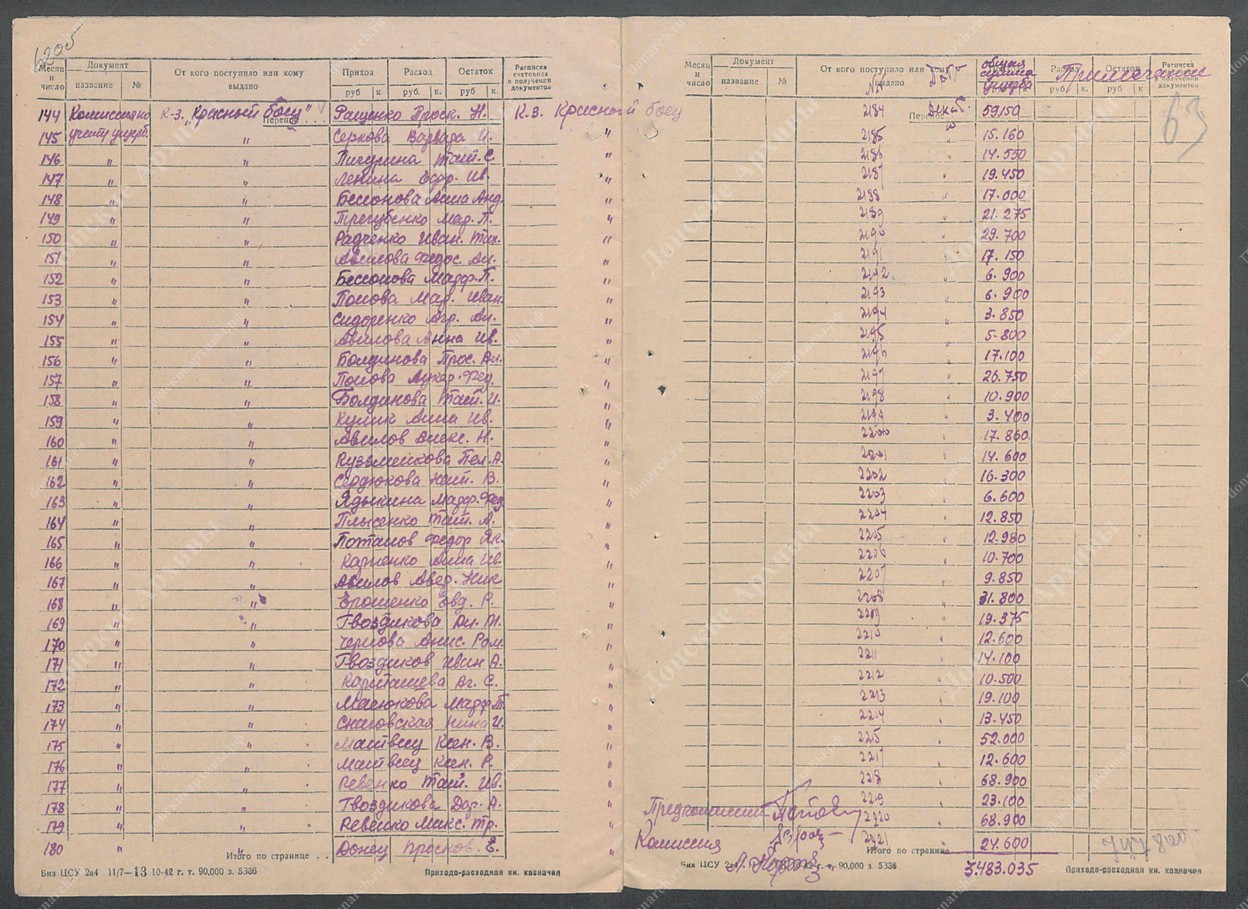 6205
Месяц и число
Документ
название
№
От кого поступило или кому выдано
Приход
руб к.
Расход
руб. к.
Остаток
руб к.
Расписка счетовода в получении документов
144 Комиссия по К-З. „Красный боец" Ращенко Проск. Н. К-З. Красный боец
учету ущерб.
Перенос
145 " Серкова Варвара И. "
146 " " Пичурина Таит. С. "
147 " " Ленина Евдр. Ив. "
148 " " Бессонова Анна Анд. "
149 " " Трегубенко Мар. П. "
150 " " Радченко Иван. Тих. "
151 " " Авилова Федос. Ан. "
152 " " Бессонова Марф. П. "
153 " " Попова Мар. Иван. "
154 " " Сидоренко Агр. Ан. "
155 " " Авилова Анна Ив. "
156 " " Болдинова Прос. Ан. "
157 " " Попова Лукер. Фед. "
158 " " Болдинова Тат. И. "
159 " " Кулик Анна Ив. "
160 " " Авилов Алекс. Н. "
161 " " Кузьменкова Пел. А. "
162 " " Сердюкова Нат. В. "
163 " " Ядыкина Марф. Фед. "
164 " " Плысенко Тат. А. "
165 " " Потапов Федор Як. "
166 " " Карпенко Анна Ив. "
167 " " Авилов Авед. Ник. "
168 " " Ерошенко Евд. Р. "
169 " " Гвоздикова Ан. М. "
170 " " Чернова Анис. Ром. "
171 " " Гвоздиков Иван А. "
172 " " Карташева Аг. С. "
173 " " Масюкова Марф. Т. "
174 " " Снаговская Нина И. "
175 " " Матвеец Ксен. В. "
176 " " Матвеец Ксен. Р. "
177 " " Ревенко Тат. Ив. "
178 " " Гвоздикова Дар. А. "
179 " " Ревенко Макс. Тр. "
180 " " Донец Просков. Е. "
Итого по странице . .
Виз ЦСУ 2а4 11/7—13 10-42 г. т. 90,000 з. 5336
Приходо-расходная кн. казначея
Месяц и число
Документ
название
№
От кого поступило или кому выдано
№
общая сумма ущерба
Примечание
Остаток
руб к.
руб к.
Расписка
документов
63
Перенос
2184 декаб. 59.150
2185 " 15.160
2186 " 14.550
2187 " 19.450
2188 " 17.000
2189 " 21.275
2190 " 29.700
2191 " 17.150
2192 " 6.900
2193 " 6.900
2194 " 3.850
2195 " 5.800
2196 " 17.100
2197 " 26.750
2198 " 10.900
2199 " 3.400
2200 " 17.860
2201 " 14.600
2202 " 16.300
2203 " 6.600
2204 " 12.850
2205 " 12.980
2206 " 10.700
2207 " 9.850
2208 " 31.800
2209 " 19.375
2210 " 12.600
2211 " 14.100
2212 " 10.500
2213 " 19.100
2214 " 13.450
225 " 52.000
2217 " 12.600
2218 " 68.900
2219 " 23.100
2220 " 68.900
2221 " 24.600
Предкомиссии
Комиссия
Итого по странице
3.483.035
747.800
Виз ЦСУ 2а4 10-42 г. т. 90,000 з. 5336
Приходо-расходная кн. казначея